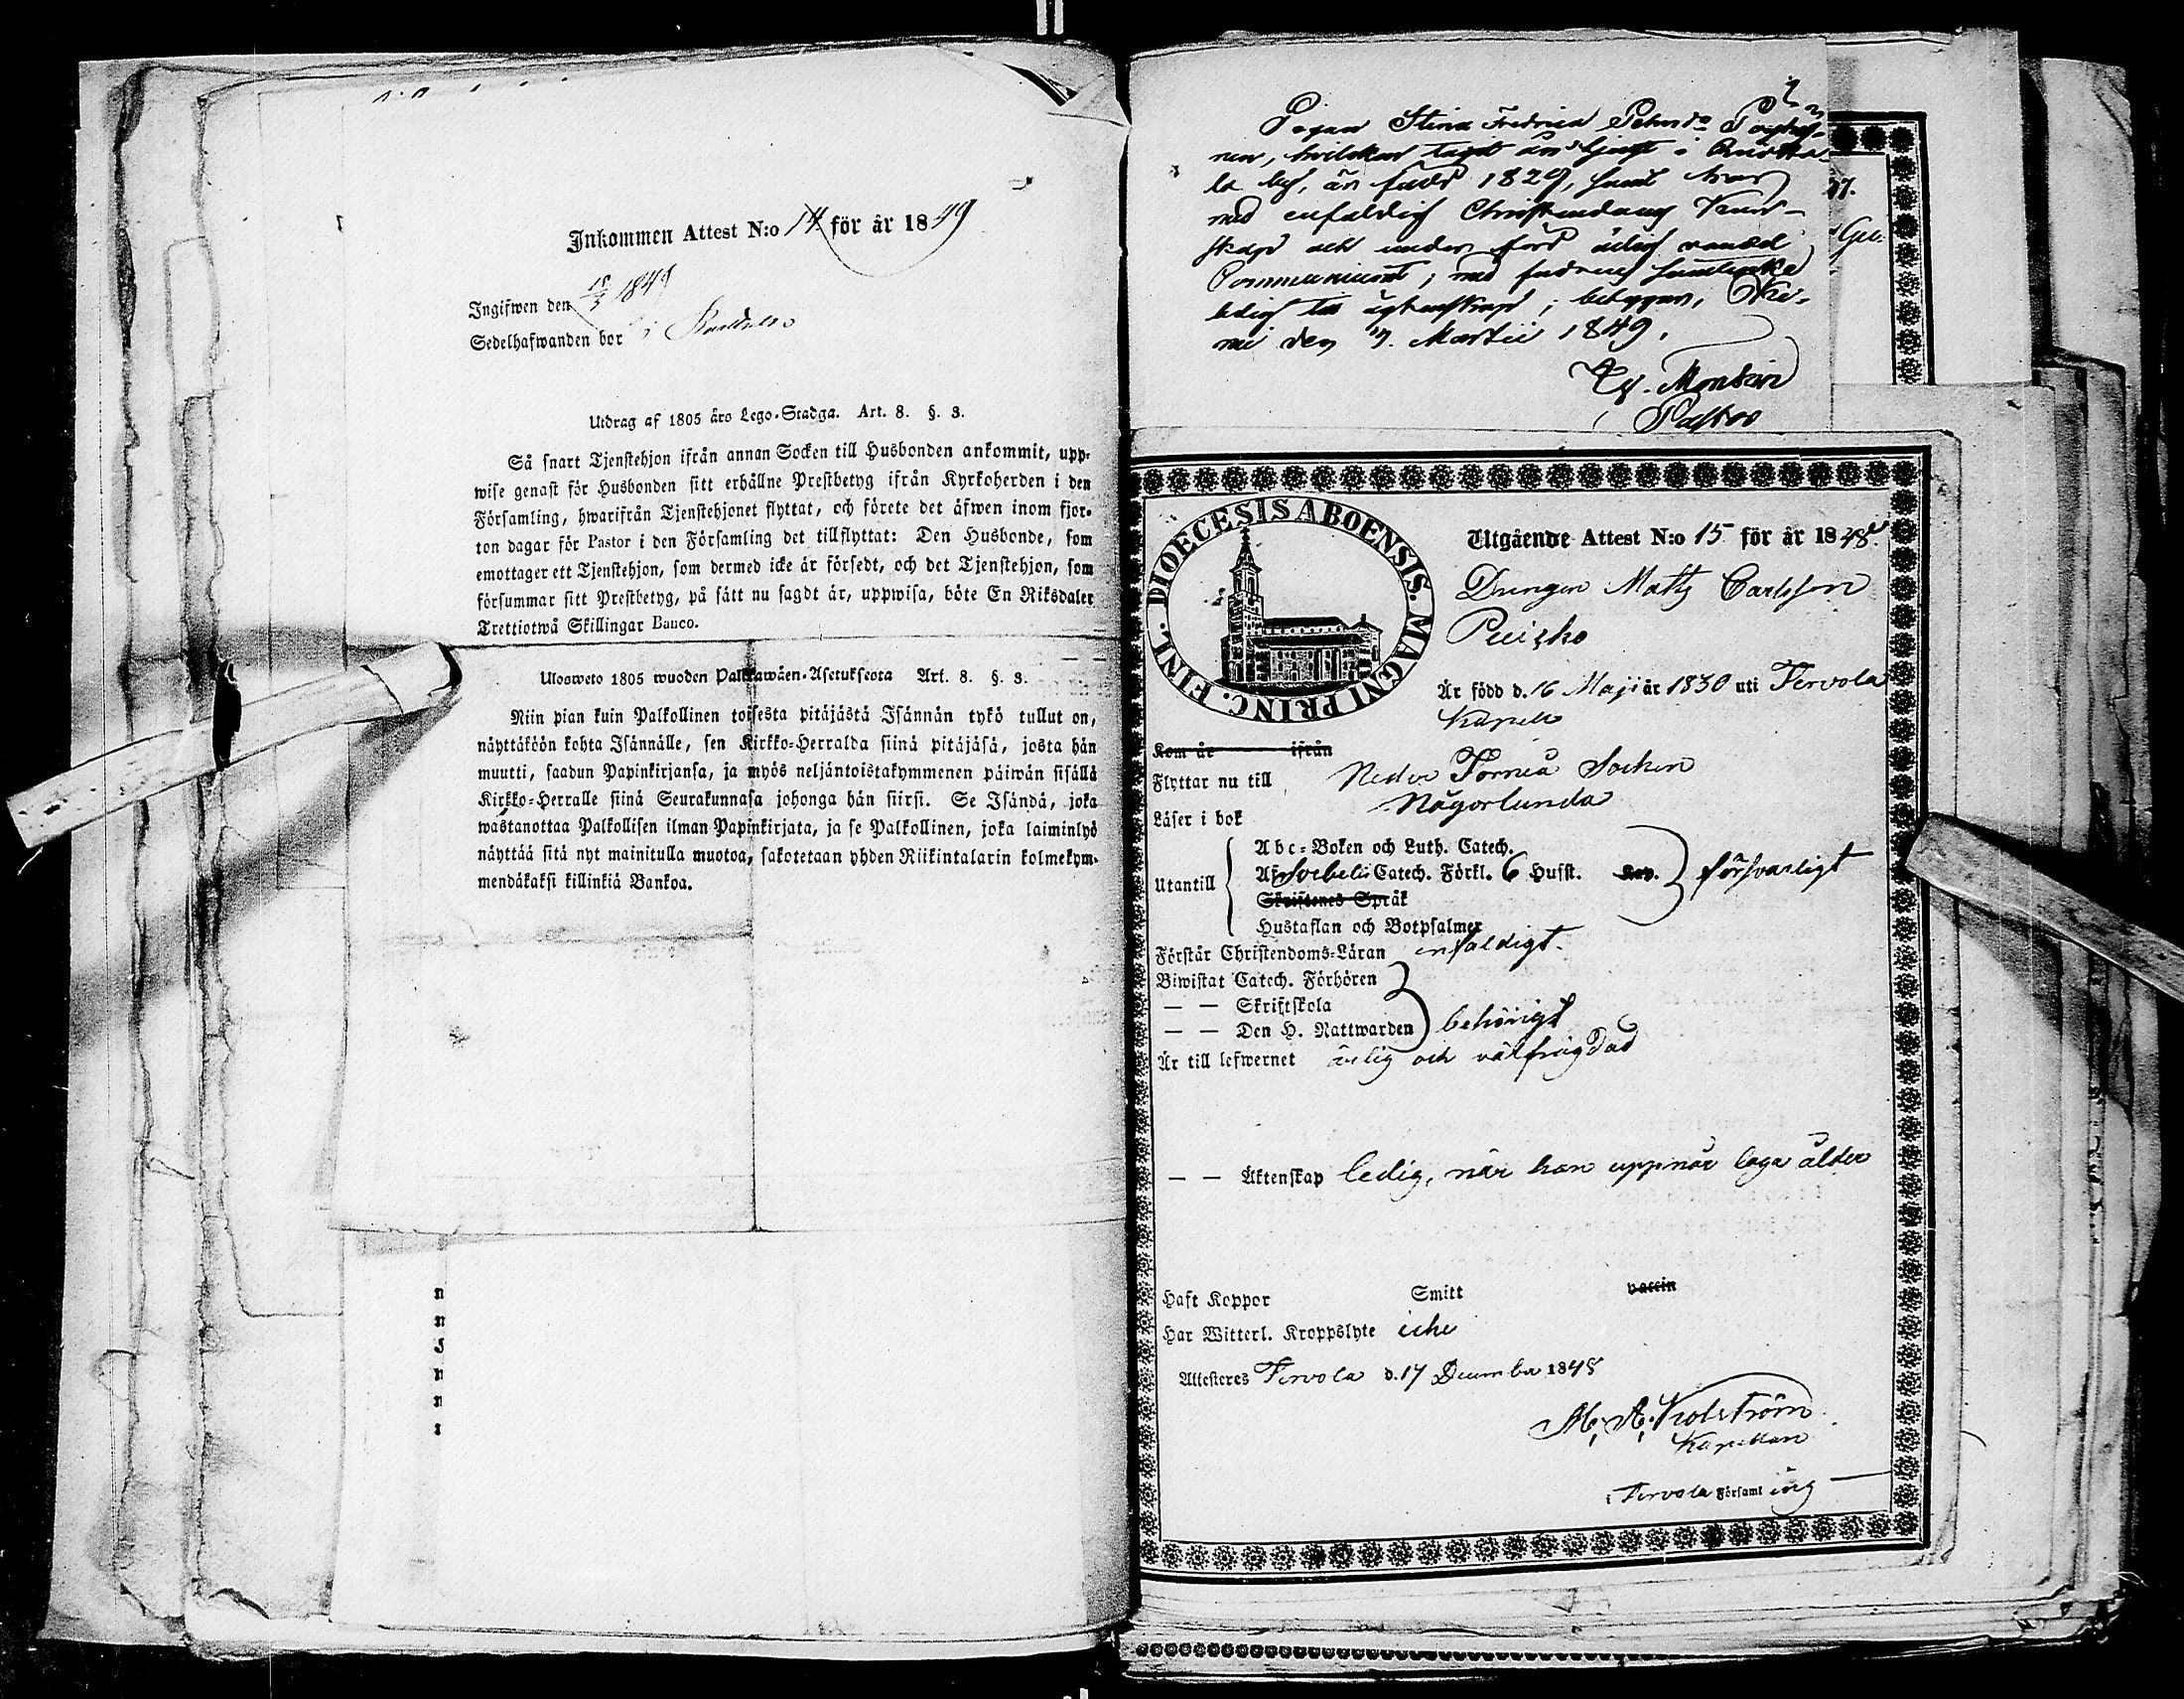 Inkommen Attest N:o 14 för år 1849
Ingifwen den 18/3 1849
Sedelhafwanden bor i
Utdrag af 1805 års Lego-Stadga. Art. 8. §. 3.
Så snart Tjenstehjon ifrån annan Socken till Husbonden ankommit, upp-
wise genast för Husbonden sitt erhållne Prestbetyg ifrån Kyrkoherden i den
Församling, hwarifrån Tjenstehjonet flyttat, och förete det äfwen inom fjor-
ton dagar för Pastor i den Församling det tillflyttat: Den Husbonde, som
emottager ett Tjenstehjon, som dermed icke är försedt, och det Tjenstehjon, som
försummar sitt Prestbetyg, på sätt nu sagdt är, uppwisa, böte En Riksdaler
Trettiotwå Skillingar Banco.
Ulosweto 1805 wuoden Palkkawäen-Asetuksesta Art. 8. §. 3.
Niin pian kuin Palkollinen toisesta pitäjästä Isännän tykö tullut on,
näyttäköön kohta Isännälle, sen Kirkko-Herralda siinä pitäjäsä, josta hän
muutti, saadun Papinkirjansa, ja myös neljäntoistakymmenen päiwän sisällä
Kirkko-Herralle siinä Seurakunnasa johonga hän siirsi. Se Isändä, joka
wastanottaa Palkollisen ilman Papinkirjata, ja se Palkollinen, joka laiminlyö
näyttää sitä nyt mainitulla muotoa, sakotetaan yhden Riikintalarin kolmekym-
mendäkaksi killinkiä Bankoa.
Pigan Stina Fredrica Pehrsdr
nen, hvilken tagit års tjenst i
la by, är född 1829, samt har
med enfaldig Christendoms Kun-
skap och under förd ärlig vandel
Communicerat; med
ledig till ägtenskap; betygar, Ke-
mi den 17. Martii 1849.
Pastor
Utgående Attest N:o 15 för år 1848.
Drengen Matts Carlsson
Är född d. 16 Maji år 1830 uti Tervola
Kapell
Kom år ifrån
Flyttar nu till Neder Torneå Socken
Läser i bok Någorlunda
Utantill
Abc-Boken och Luth. Catech.
Af Svebelii Catech. Förkl. 6 Hufst. Kap. försvarligt
Skriftenes Språk
Hustaflan och Botpsalmer
Förstår Christendoms-Läran enfaldigt.
Biwistat Catech. Förhören
— — Skriftskola
— — Den H. Nattwarden behörigt
Är till lefwernet ärlig och välfrägdad
— — Äktenskap ledig, när han uppnår laga ålder
Haft Koppor Smitt vaccin
Har Witterl. Kroppslyte icke
Attesteres Tervola d. 17 December 1848
Kapellan
i Tervola Församl ing
DIOECESIS ABOENSIS. MAGNI PRINC. FINL.